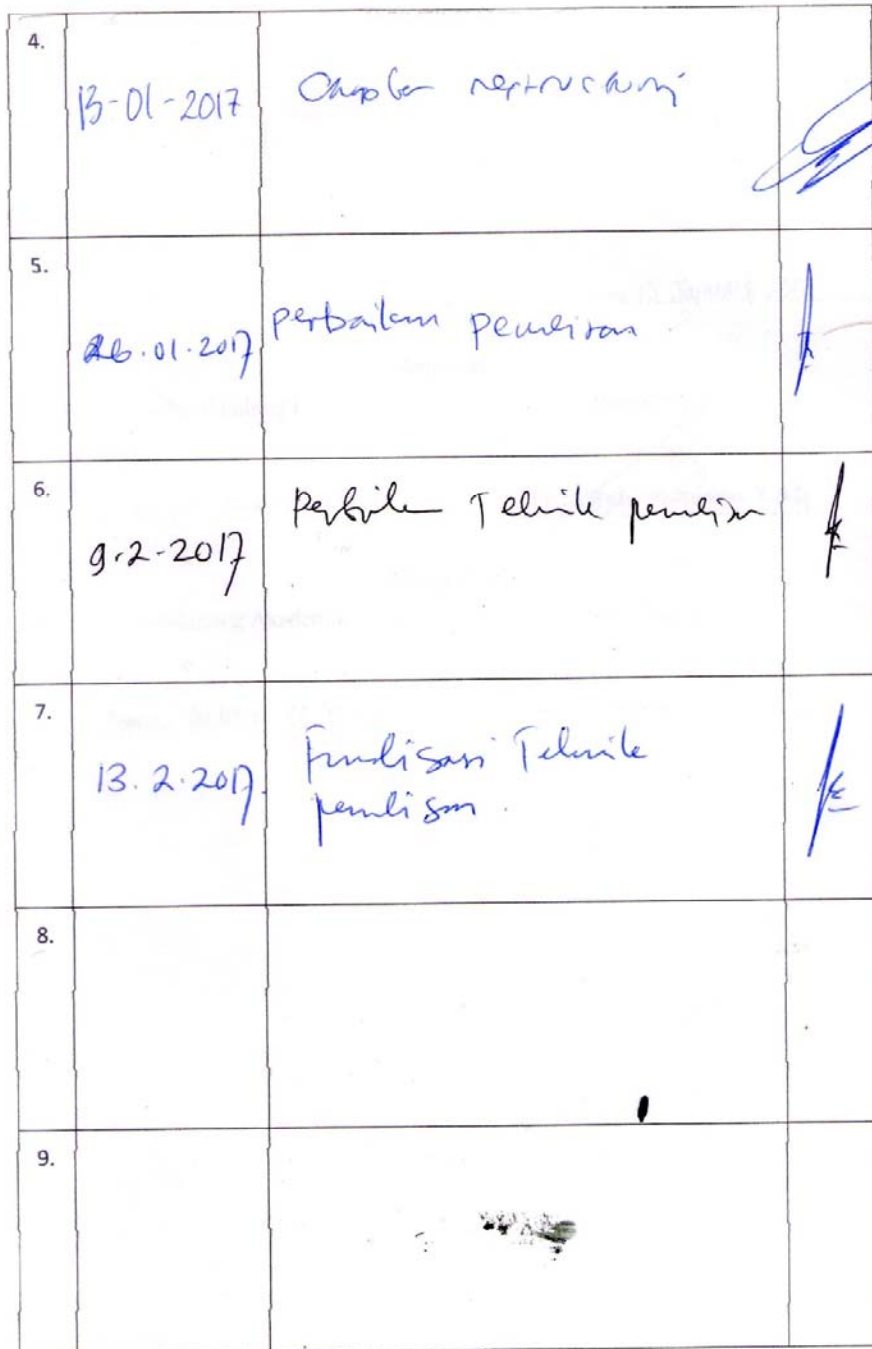 4.
13-01-2017 Chapter restructuring
5.
26.01.2017 perbaikan penulisan
6.
9.2.2017 Perbaikan Teknik penulisan
7.
13.2.2017 Finalisasi Teknik
penulisan.
8.
9.